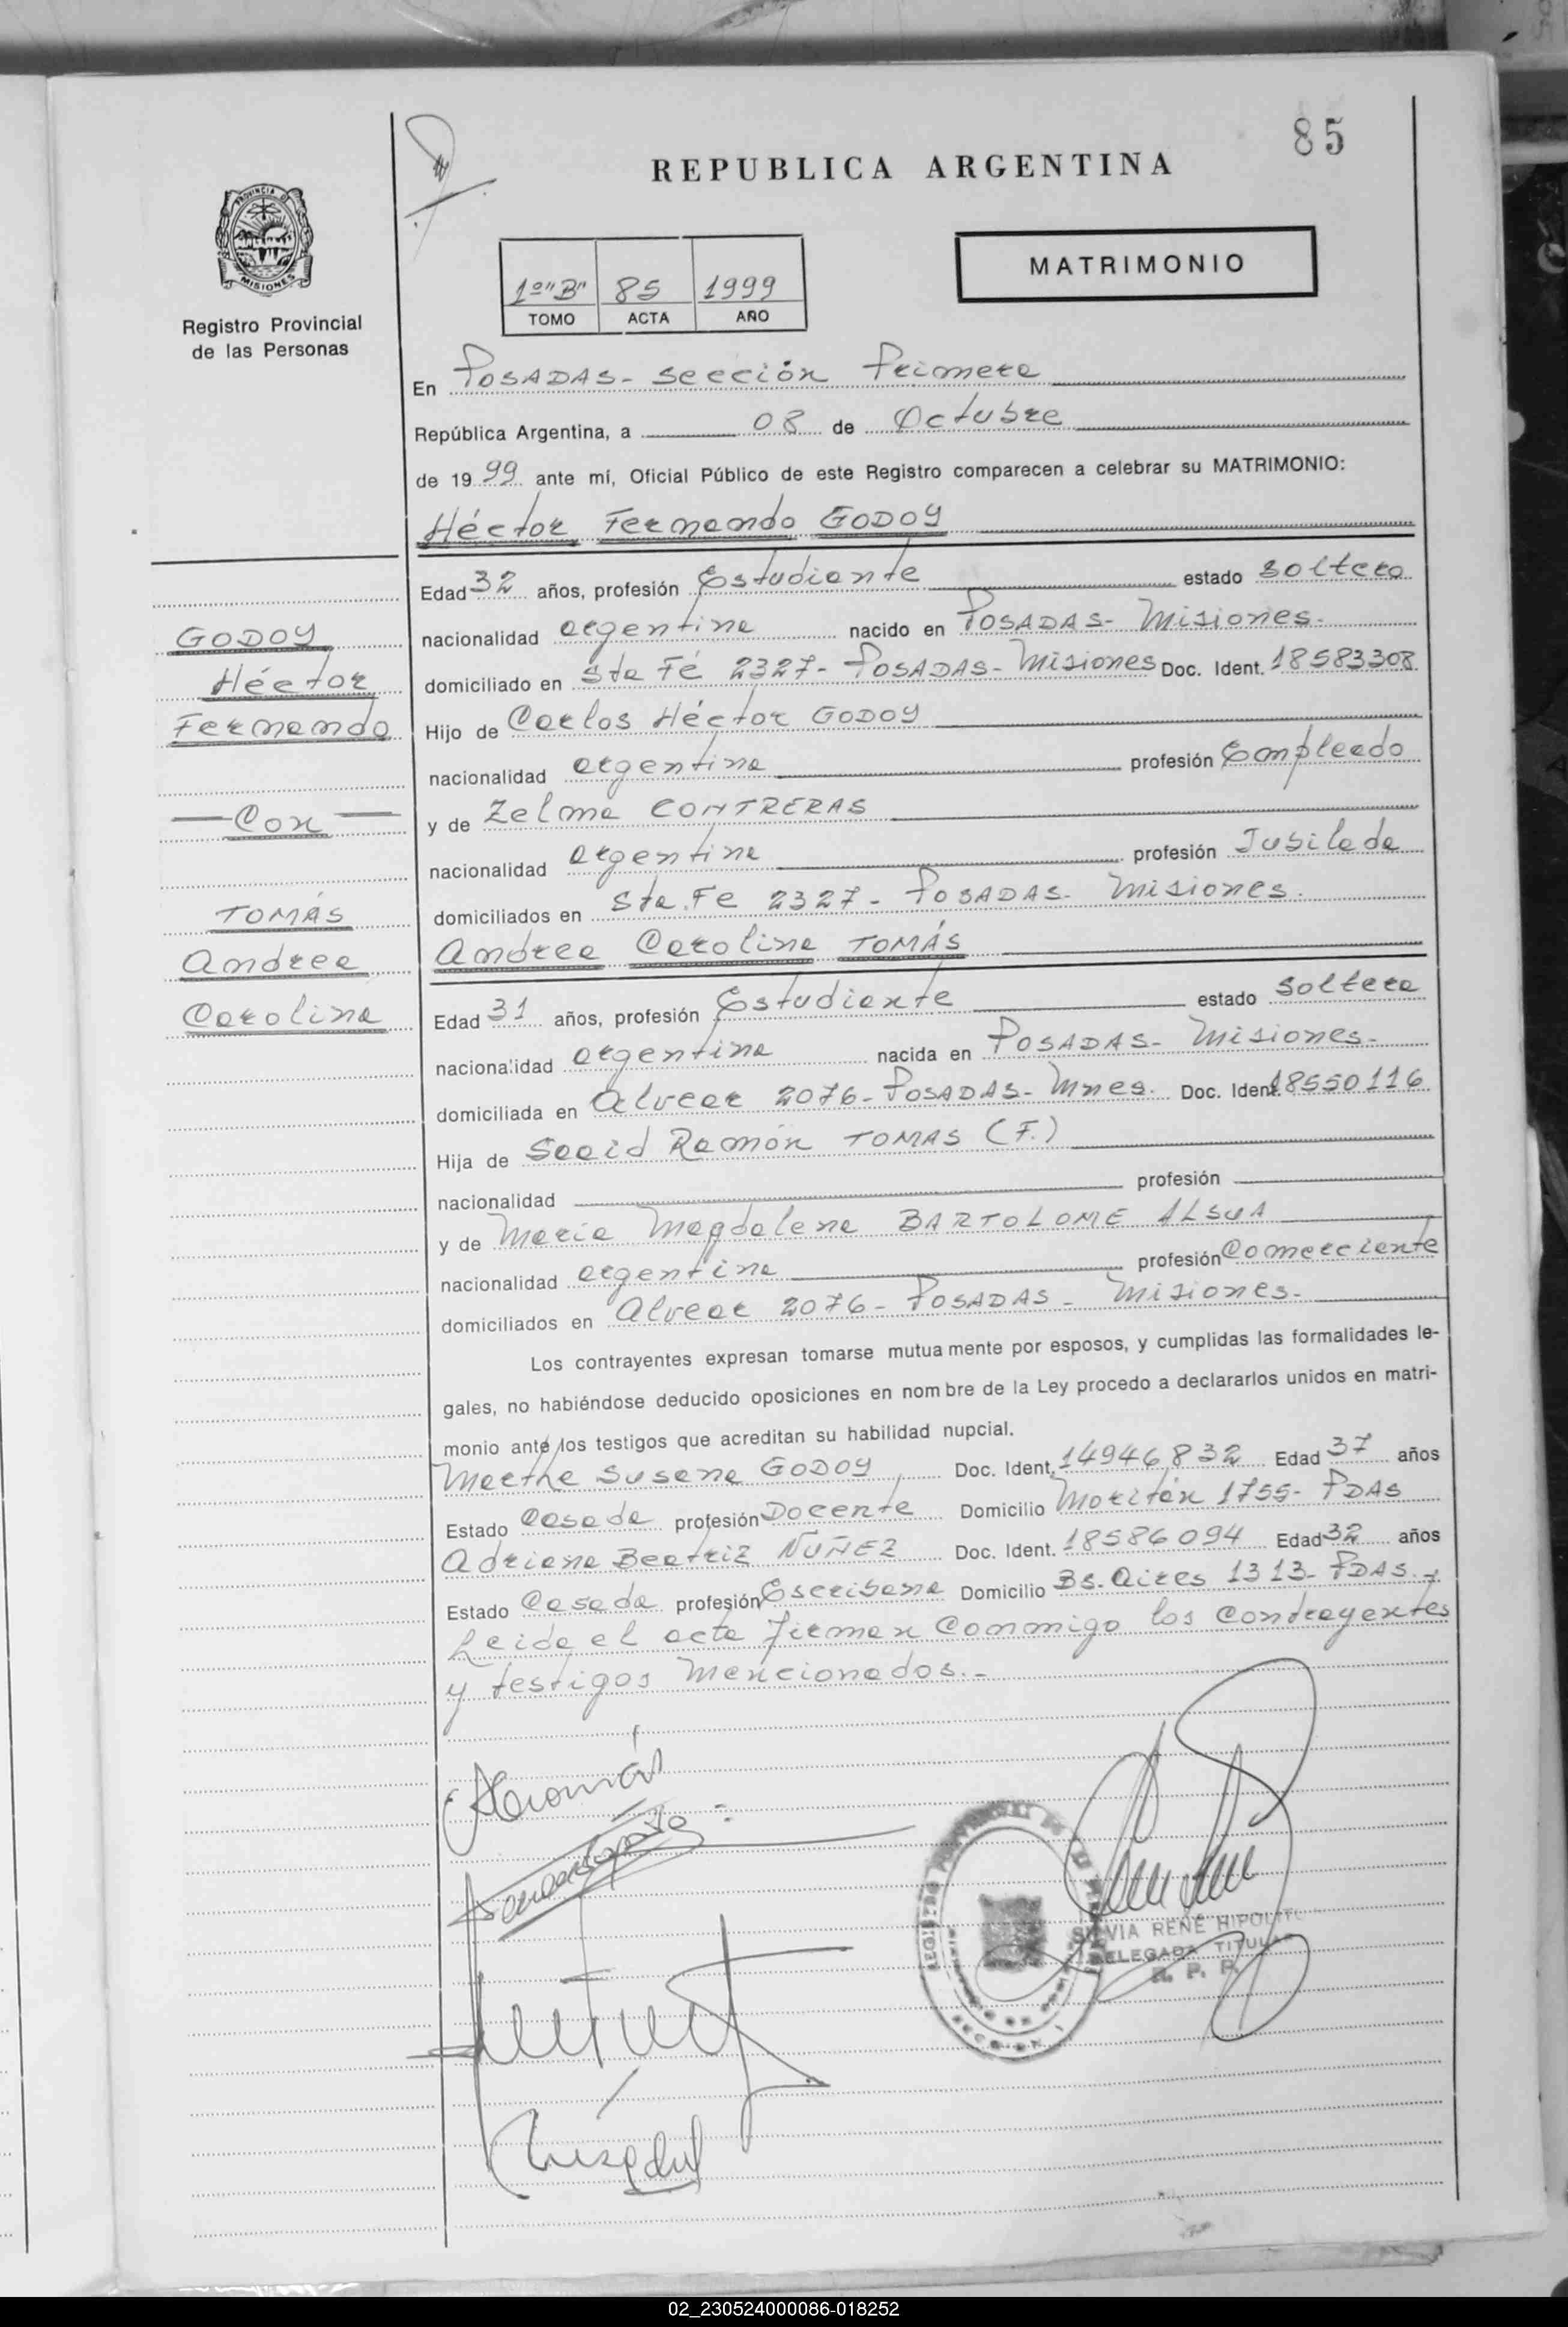 85
REPUBLICA ARGENTINA
PROVINCIA DE
MISIONES
Registro Provincial
de las Personas
1º "B" 85 1999
TOMO ACTA AÑO
MATRIMONIO
En POSADAS - sección Primera
República Argentina, a 08 de Octubre
de 1999 ante mí, Oficial Público de este Registro comparecen a celebrar su MATRIMONIO:
Héctor Fernando GODOY
Edad 32 años, profesión Estudiante estado soltero
nacionalidad argentina nacido en POSADAS - Misiones.
domiciliado en Sta Fé 2327 - POSADAS - Misiones Doc. Ident. 18583308
Hijo de Carlos Héctor GODOY
nacionalidad argentina profesión Empleado
y de Zelma CONTRERAS
nacionalidad argentina profesión Jubilada
domiciliados en Sta. Fe 2327 - POSADAS - Misiones.
Andrea Carolina TOMÁS
Edad 31 años, profesión Estudiante estado soltera
nacionalidad argentina nacida en POSADAS - Misiones -
domiciliada en Alvear 2076 - POSADAS - Mnes. Doc. Ident. 18550116
Hija de Saaid Ramón TOMAS (F.)
nacionalidad profesión
y de María Magdalena BARTOLOME ALSUA
nacionalidad argentina profesión Comerciante
domiciliados en Alvear 2076 - POSADAS - Misiones -
Los contrayentes expresan tomarse mutuamente por esposos, y cumplidas las formalidades le-
gales, no habiéndose deducido oposiciones en nombre de la Ley procedo a declararlos unidos en matri-
monio ante los testigos que acreditan su habilidad nupcial.
Martha Susana GODOY Doc. Ident. 14946832 Edad 37 años
Estado Casada profesión Docente Domicilio Moritán 1755 - PDAS
Adriana Beatriz NUÑEZ Doc. Ident. 18586094 Edad 32 años
Estado Casada profesión Escribana Domicilio Bs. Aires 1313 - PDAS. -
Leida el acta firman conmigo los contrayentes
y testigos mencionados. -
GODOY
Héctor
Fernando
— Con —
TOMÁS
Andrea
Carolina
SILVIA RENÉ HIPOLITO
DELEGADA TITULAR
R. P. P.
SECCION 1
02_230524000086-018252